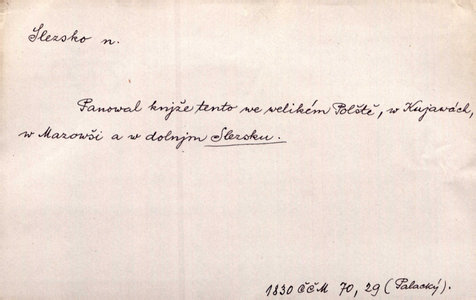 Slezsko n.
Panowal knjže tento we welikém Polště, w Kujawách,
w Mazowši a w dolnjm Slezsku.
1830 ČČM 70, 29 (Palacký).